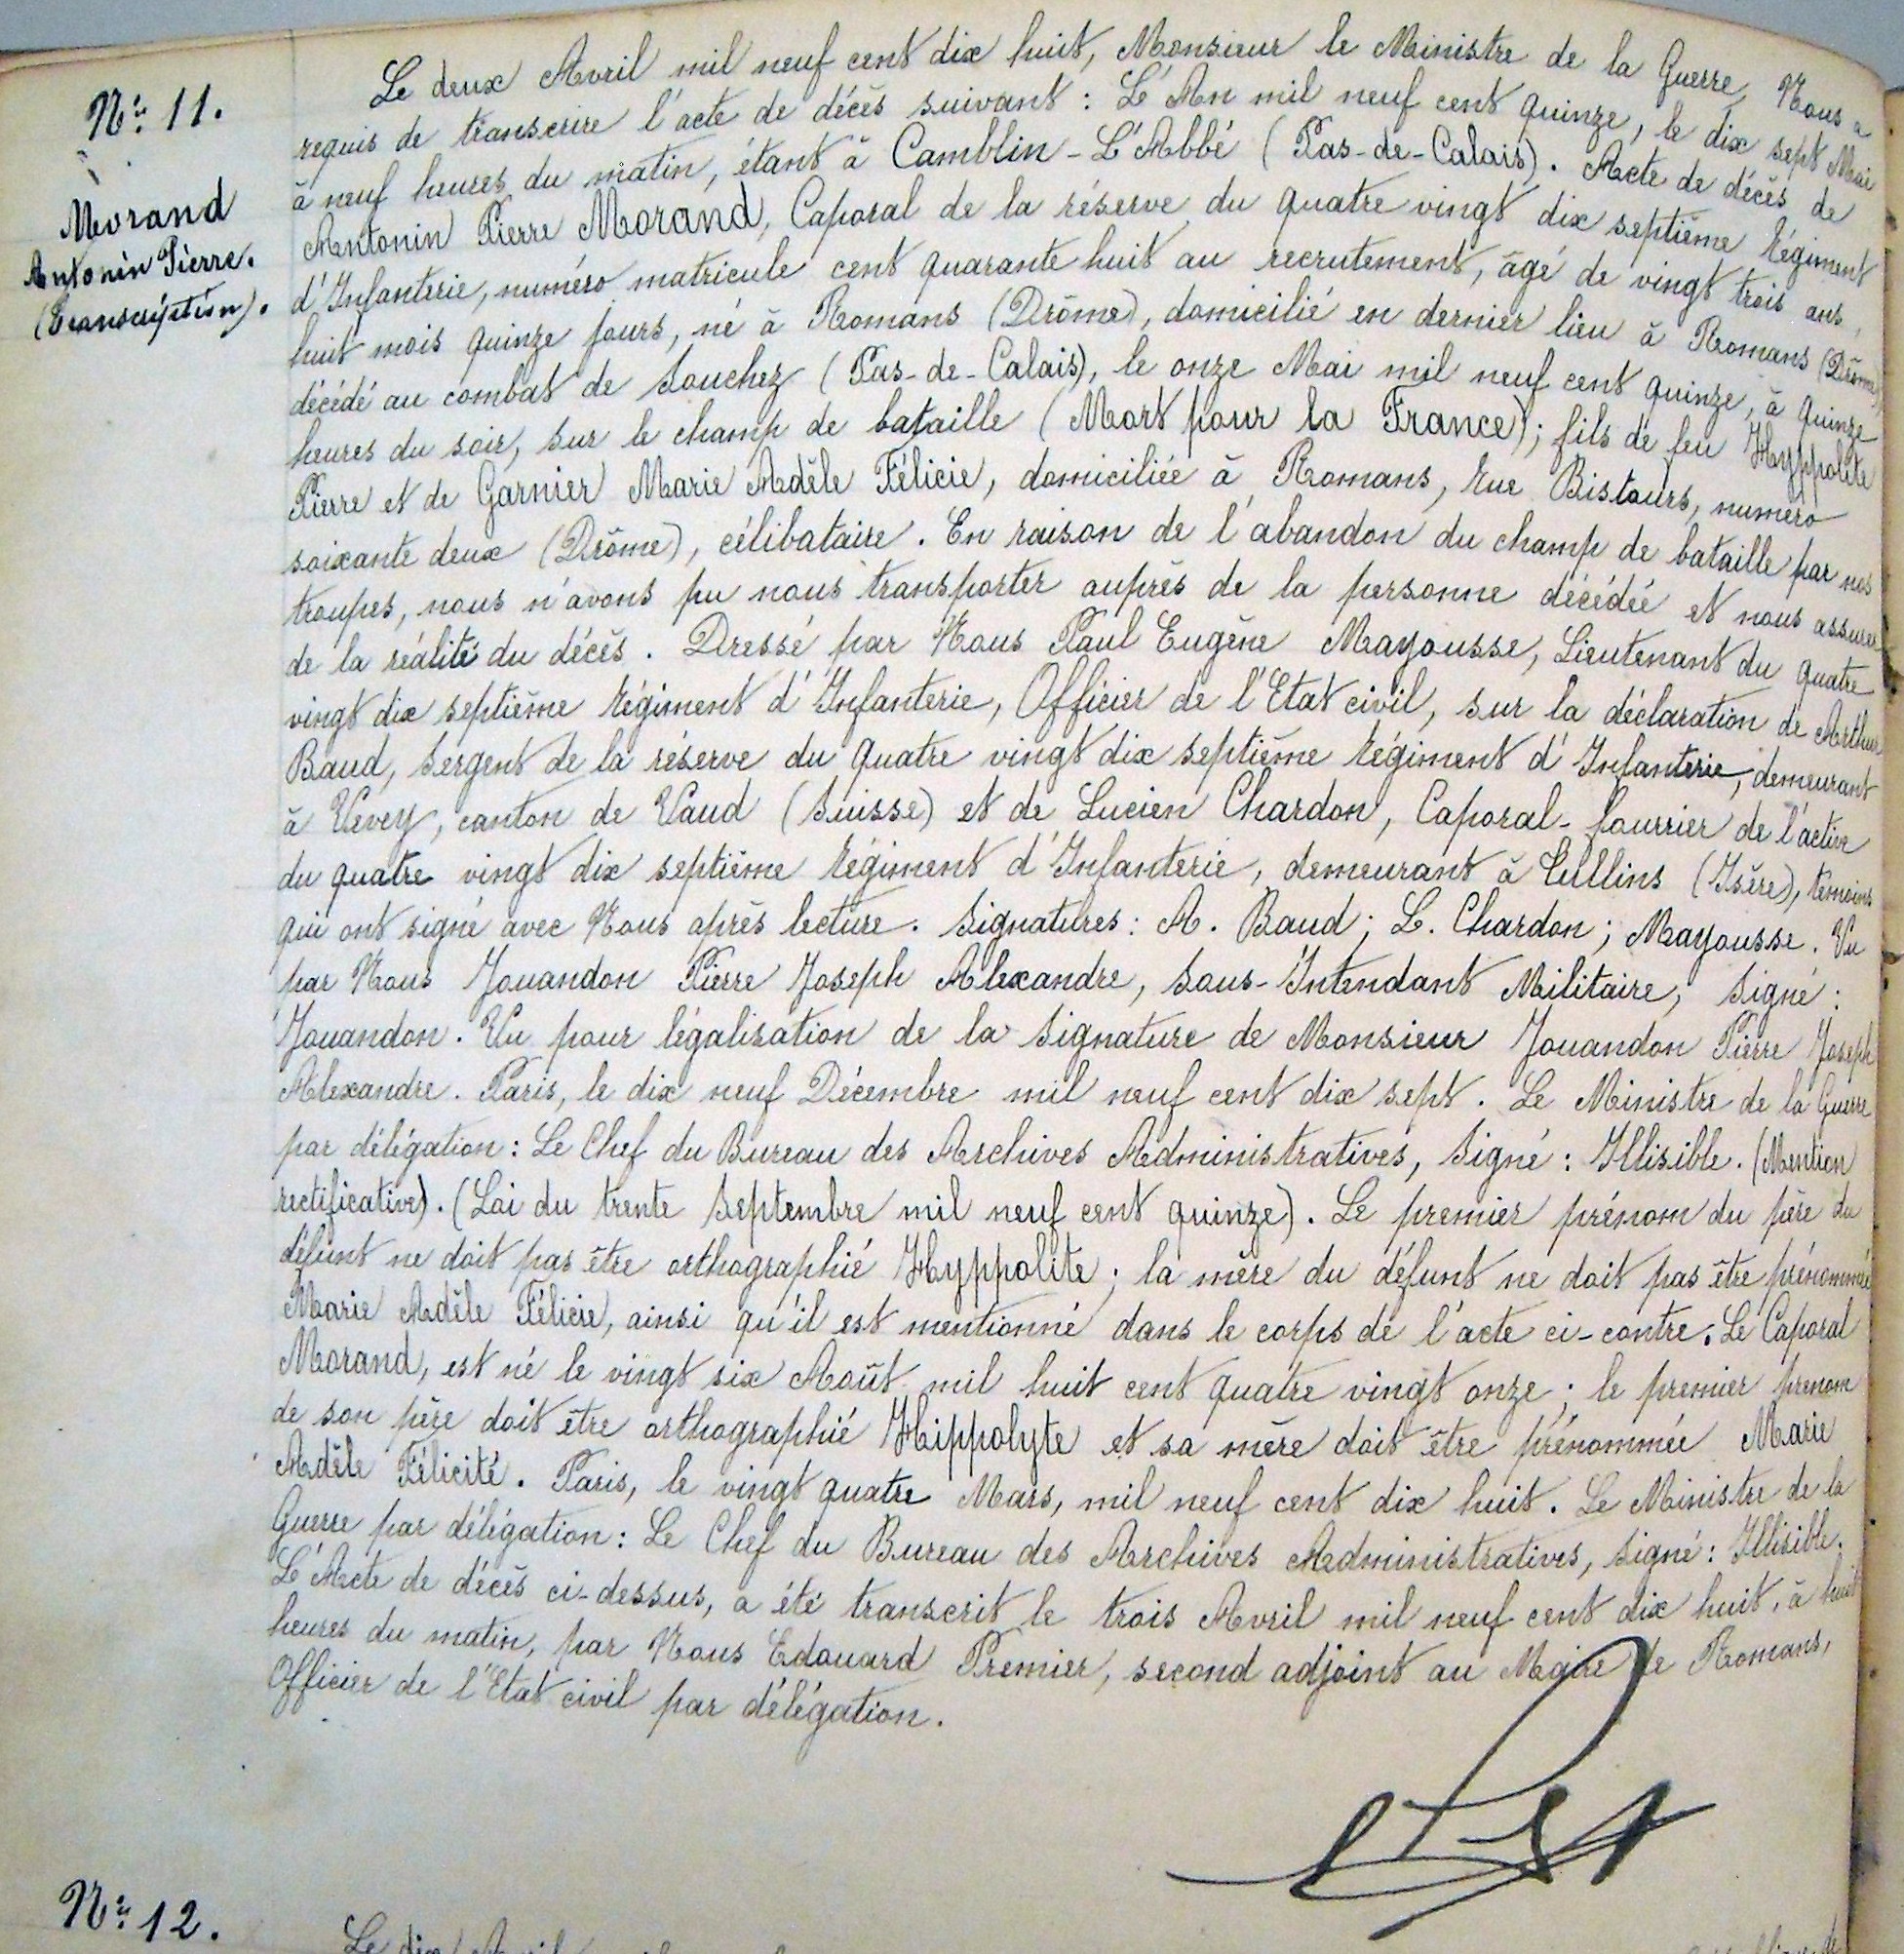 Nº 11.
Morand
Antonin Pierre.
(Transcription).
Le deux Avril mil neuf cent dix huit, Monsieur le Ministre de la Guerre, Nous a
requis de transcrire l'acte de décès suivant : L'An mil neuf cent quinze, le dix sept Mai
à neuf heures du matin, étant à Camblin-L'Abbé (Pas-de-Calais). Acte de décès de
Antonin Pierre Morand, Caporal de la réserve du quatre vingt dix septième Régiment
d'Infanterie, numéro matricule cent quarante huit au recrutement, âgé de vingt trois ans,
huit mois quinze jours, né à Romans (Drôme), domicilié en dernier lieu à Romans (Drôme),
décédé au combat de Souchez (Pas-de-Calais), le onze Mai mil neuf cent quinze, à quinze
heures du soir, sur le champ de bataille (Mort pour la France) ; fils de feu Hyppolite
Pierre et de Garnier Marie Adèle Félicie, domiciliée à Romans, rue Bistours, numéro
soixante deux (Drôme), célibataire. En raison de l'abandon du champ de bataille par nos
troupes, nous n'avons pu nous transporter auprès de la personne décédée et nous assurer
de la réalité du décès. Dressé par Nous Paul Eugène Mayousse, Lieutenant du quatre
vingt dix septième Régiment d'Infanterie, Officier de l'Etat civil, sur la déclaration de Arthur
Baud, Sergent de la réserve du quatre vingt dix septième Régiment d'Infanterie, demeurant
à Vevey, canton de Vaud (Suisse) et de Lucien Chardon, Caporal-fourrier de l'active
du quatre vingt dix septième Régiment d'Infanterie, demeurant à Tullins (Isère), témoins
qui ont signé avec Nous après lecture. Signatures : A. Baud ; L. Chardon ; Mayousse. Vu
par Nous Jouandon Pierre Joseph Alexandre, Sous-Intendant Militaire, Signé :
Jouandon. Vu pour légalisation de la Signature de Monsieur Jouandon Pierre Joseph
Alexandre. Paris, le dix neuf Décembre mil neuf cent dix sept. Le Ministre de la Guerre
par délégation : Le Chef du Bureau des Archives Administratives, Signé : Illisible. (Mention
rectificative). (Loi du trente Septembre mil neuf cent quinze). Le premier prénom du père du
défunt ne doit pas être orthographié Hyppolite ; la mère du défunt ne doit pas être prénommée
Marie Adèle Félicie, ainsi qu'il est mentionné dans le corps de l'acte ci-contre. Le Caporal
Morand, est né le vingt six Août mil huit cent quatre vingt onze ; le premier prenom
de son père doit être orthographié Hippolyte et sa mère doit être prénommée Marie
Adèle Félicité. Paris, le vingt quatre Mars, mil neuf cent dix huit. Le Ministre de la
Guerre par délégation : Le Chef du Bureau des Archives Administratives, Signé : Illisible.
L'Acte de décès ci-dessus, a été transcrit le trois Avril mil neuf cent dix huit, à huit
heures du matin, par Nous Edouard Premier, second adjoint au Maire de Romans,
Officier de l'Etat civil par délégation.
Nº 12.
Le dix Avril